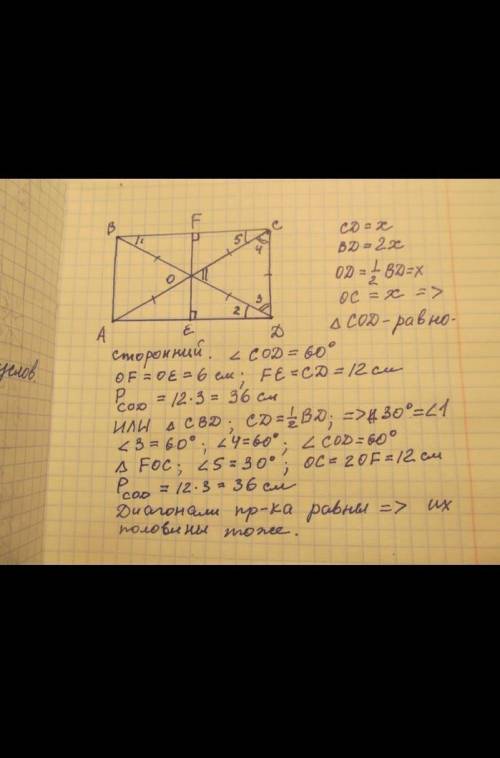 B F C
1 5 4
O
2 3
A E D
CD = x
BD = 2x
OD = 1/2 BD = x
OC = x =>
△ COD - равно-
сторонний. ∠ COD = 60°
OF = OE = 6 см; FE = CD = 12 см
P COD = 12·3 = 36 см
ИЛИ △ CBD; CD = 1/2 BD; => 30° = ∠1
∠3 = 60°; ∠4 = 60°; ∠ COD = 60°
△ FOC; ∠5 = 30°; OC = 2OF = 12 см
P COD = 12·3 = 36 см
Диагонали пр-ка равны => их
половины тоже.
услов.